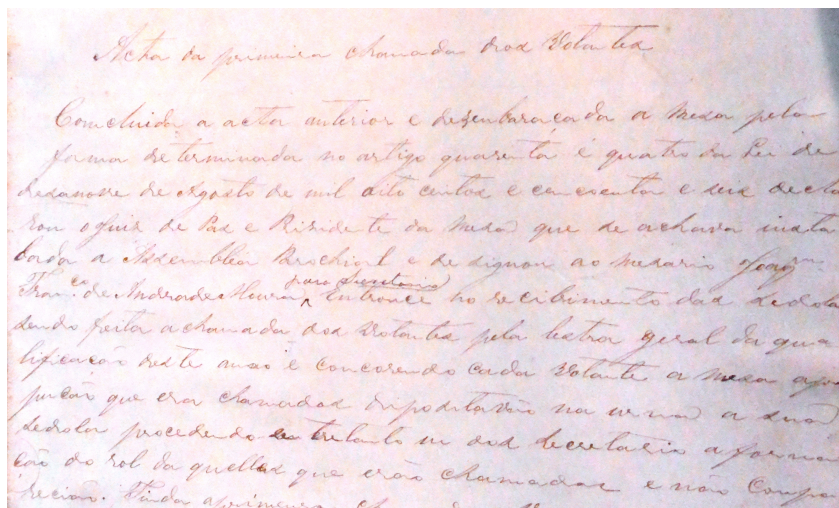 Acta da primeira chamada dos Votantes
Comcluida a acta anterior e dezenbaraçada a meza pela
forma determinada no artigo quarenta e quatro da Lei de
dezanove de Agosto de mil oito centos e cencoenta e seis decla
rou o Juis de Pas e Prizidente da Meza que se achava insta
lada a Assemblea Parochial e designou ao mezario Joaqm
Franco de Andrade Moura, para Secretario Entrouce no recibimento das sedolas
sendo feita a chamada dos Votantes pela lestra geral da qua
lificação deste anno e concorendo cada Votante a meza a
porcão que era chamados dipozitavão na urna a sua
sedola procedendo entretanto um dos Secretario a forma
cão do rol da quelles que erão chamados e não compa
recião. Finda a primeira